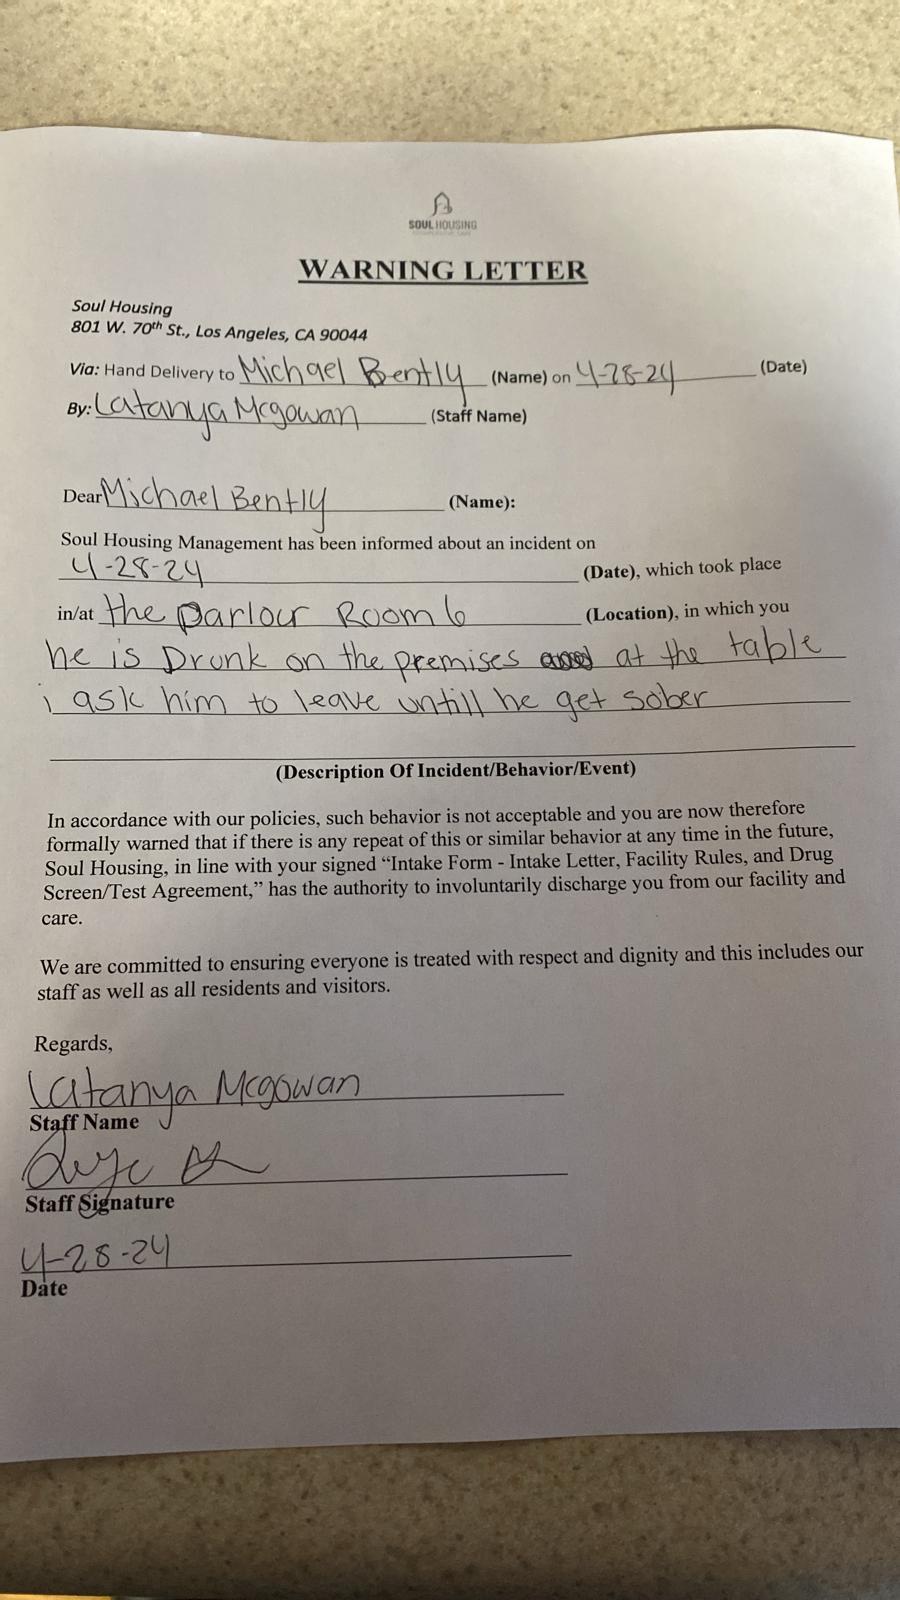 SOUL HOUSING
WARNING LETTER
Soul Housing
801 W. 70th St., Los Angeles, CA 90044
Via: Hand Delivery to Michael Bently (Name) on 4-28-24 (Date)
By: Latanya Mcgowan (Staff Name)
Dear Michael Bently (Name):
Soul Housing Management has been informed about an incident on
4-28-24 (Date), which took place
in/at the parlour Room 6 (Location), in which you
he is Drunk on the premises at the table
i ask him to leave untill he get sober
(Description Of Incident/Behavior/Event)
In accordance with our policies, such behavior is not acceptable and you are now therefore
formally warned that if there is any repeat of this or similar behavior at any time in the future,
Soul Housing, in line with your signed “Intake Form - Intake Letter, Facility Rules, and Drug
Screen/Test Agreement,” has the authority to involuntarily discharge you from our facility and
care.
We are committed to ensuring everyone is treated with respect and dignity and this includes our
staff as well as all residents and visitors.
Regards,
Latanya Mcgowan
Staff Name
Staff Signature
4-28-24
Date